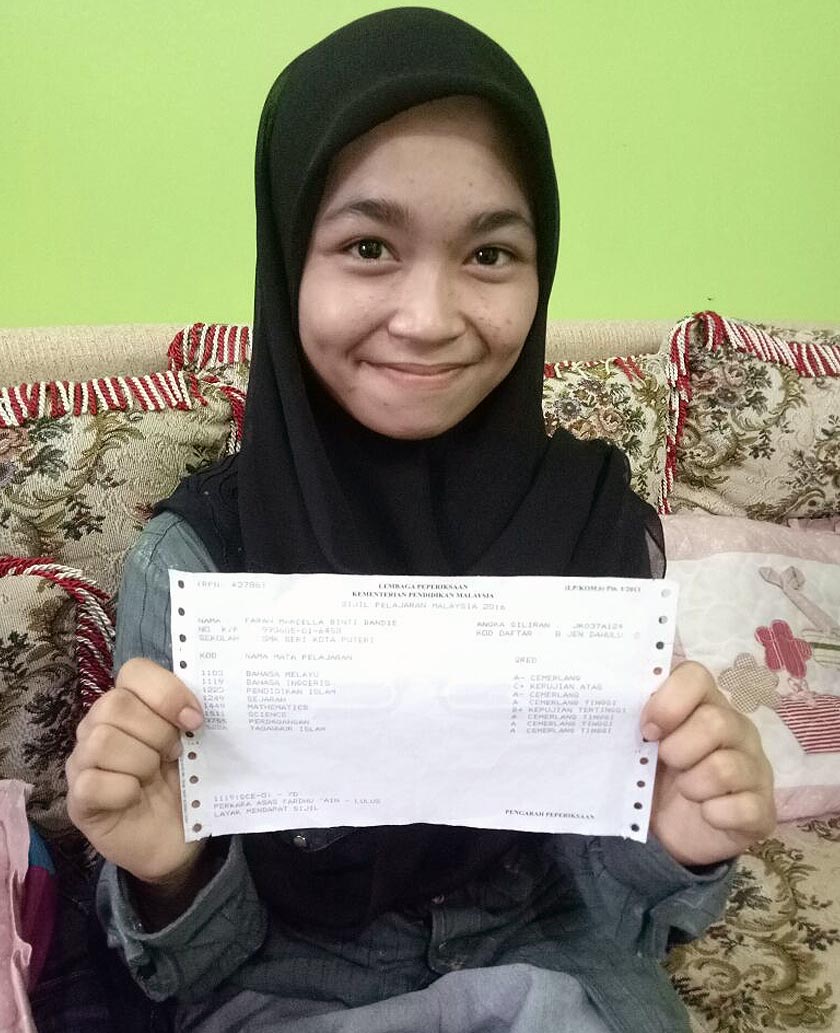 LEMBAGA PEPERIKSAAN
(LP/KOM.6) Pin. 1/2013
KEMENTERIAN PENDIDIKAN MALAYSIA
SIJIL PELAJARAN MALAYSIA 2016
NAMA FARAH BINTI
NO. K/P ANGKA GILIRAN
SEKOLAH SMK SERI KOTA PUTERI KOD DAFTAR B JEN DAHULU 0
KOD NAMA MATA PELAJARAN GRED
1103 BAHASA MELAYU A- CEMERLANG
1119 BAHASA INGGERIS C+ KEPUJIAN ATAS
1223 PENDIDIKAN ISLAM A- CEMERLANG
1249 SEJARAH A CEMERLANG TINGGI
1449 MATHEMATICS B+ KEPUJIAN TERTINGGI
1511 SCIENCE A CEMERLANG TINGGI
PERDAGANGAN A CEMERLANG TINGGI
TASAWWUR ISLAM A CEMERLANG TINGGI
PERKARA ASAS FARDHU 'AIN - LULUS
LAYAK MENDAPAT SIJIL
PENGARAH PEPERIKSAAN